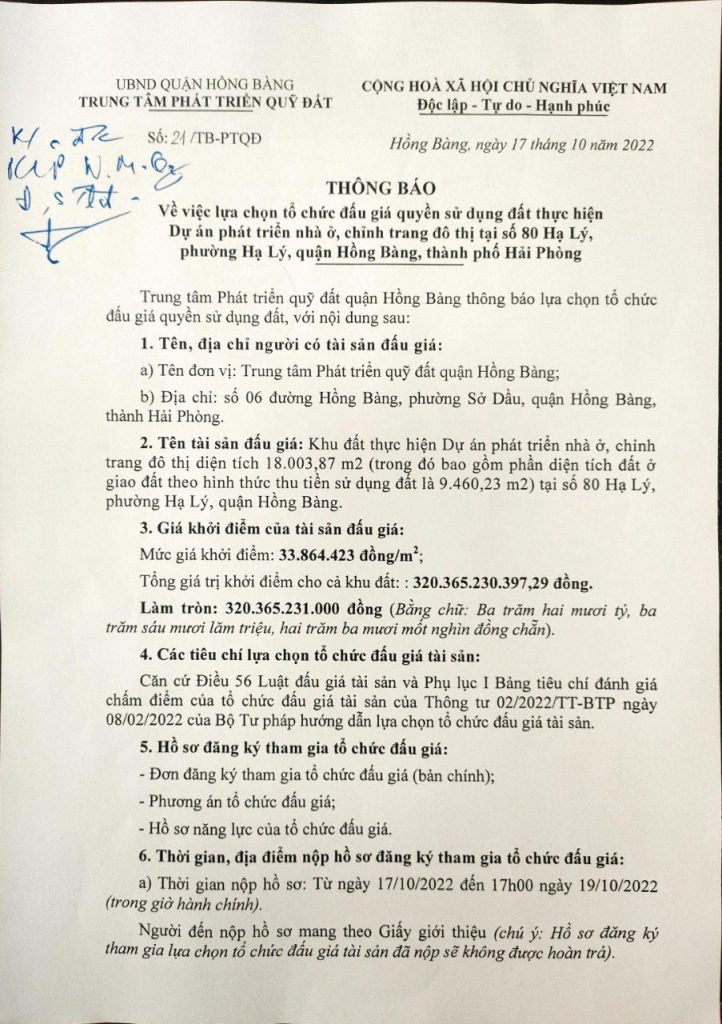 UBND QUẬN HỒNG BÀNG
TRUNG TÂM PHÁT TRIỂN QUỸ ĐẤT
Số: 21/TB-PTQĐ
CỘNG HOÀ XÃ HỘI CHỦ NGHĨA VIỆT NAM
Độc lập - Tự do - Hạnh phúc
Hồng Bàng, ngày 17 tháng 10 năm 2022
THÔNG BÁO
Về việc lựa chọn tổ chức đấu giá quyền sử dụng đất thực hiện
Dự án phát triển nhà ở, chỉnh trang đô thị tại số 80 Hạ Lý,
phường Hạ Lý, quận Hồng Bàng, thành phố Hải Phòng
Trung tâm Phát triển quỹ đất quận Hồng Bàng thông báo lựa chọn tổ chức
đấu giá quyền sử dụng đất, với nội dung sau:
1. Tên, địa chỉ người có tài sản đấu giá:
a) Tên đơn vị: Trung tâm Phát triển quỹ đất quận Hồng Bàng;
b) Địa chỉ: số 06 đường Hồng Bàng, phường Sở Dầu, quận Hồng Bàng,
thành Hải Phòng.
2. Tên tài sản đấu giá: Khu đất thực hiện Dự án phát triển nhà ở, chỉnh
trang đô thị diện tích 18.003,87 m2 (trong đó bao gồm phần diện tích đất ở
giao đất theo hình thức thu tiền sử dụng đất là 9.460,23 m2) tại số 80 Hạ Lý,
phường Hạ Lý, quận Hồng Bàng.
3. Giá khởi điểm của tài sản đấu giá:
Mức giá khởi điểm: 33.864.423 đồng/m²;
Tổng giá trị khởi điểm cho cả khu đất: : 320.365.230.397,29 đồng.
Làm tròn: 320.365.231.000 đồng (Bằng chữ: Ba trăm hai mươi tỷ, ba
trăm sáu mươi lăm triệu, hai trăm ba mươi mốt nghìn đồng chẵn).
4. Các tiêu chí lựa chọn tổ chức đấu giá tài sản:
Căn cứ Điều 56 Luật đấu giá tài sản và Phụ lục I Bảng tiêu chí đánh giá
chấm điểm của tổ chức đấu giá tài sản của Thông tư 02/2022/TT-BTP ngày
08/02/2022 của Bộ Tư pháp hướng dẫn lựa chọn tổ chức đấu giá tài sản.
5. Hồ sơ đăng ký tham gia tổ chức đấu giá:
- Đơn đăng ký tham gia tổ chức đấu giá (bản chính);
- Phương án tổ chức đấu giá;
- Hồ sơ năng lực của tổ chức đấu giá.
6. Thời gian, địa điểm nộp hồ sơ đăng ký tham gia tổ chức đấu giá:
a) Thời gian nộp hồ sơ: Từ ngày 17/10/2022 đến 17h00 ngày 19/10/2022
(trong giờ hành chính).
Người đến nộp hồ sơ mang theo Giấy giới thiệu (chú ý: Hồ sơ đăng ký
tham gia lựa chọn tổ chức đấu giá tài sản đã nộp sẽ không được hoàn trả).